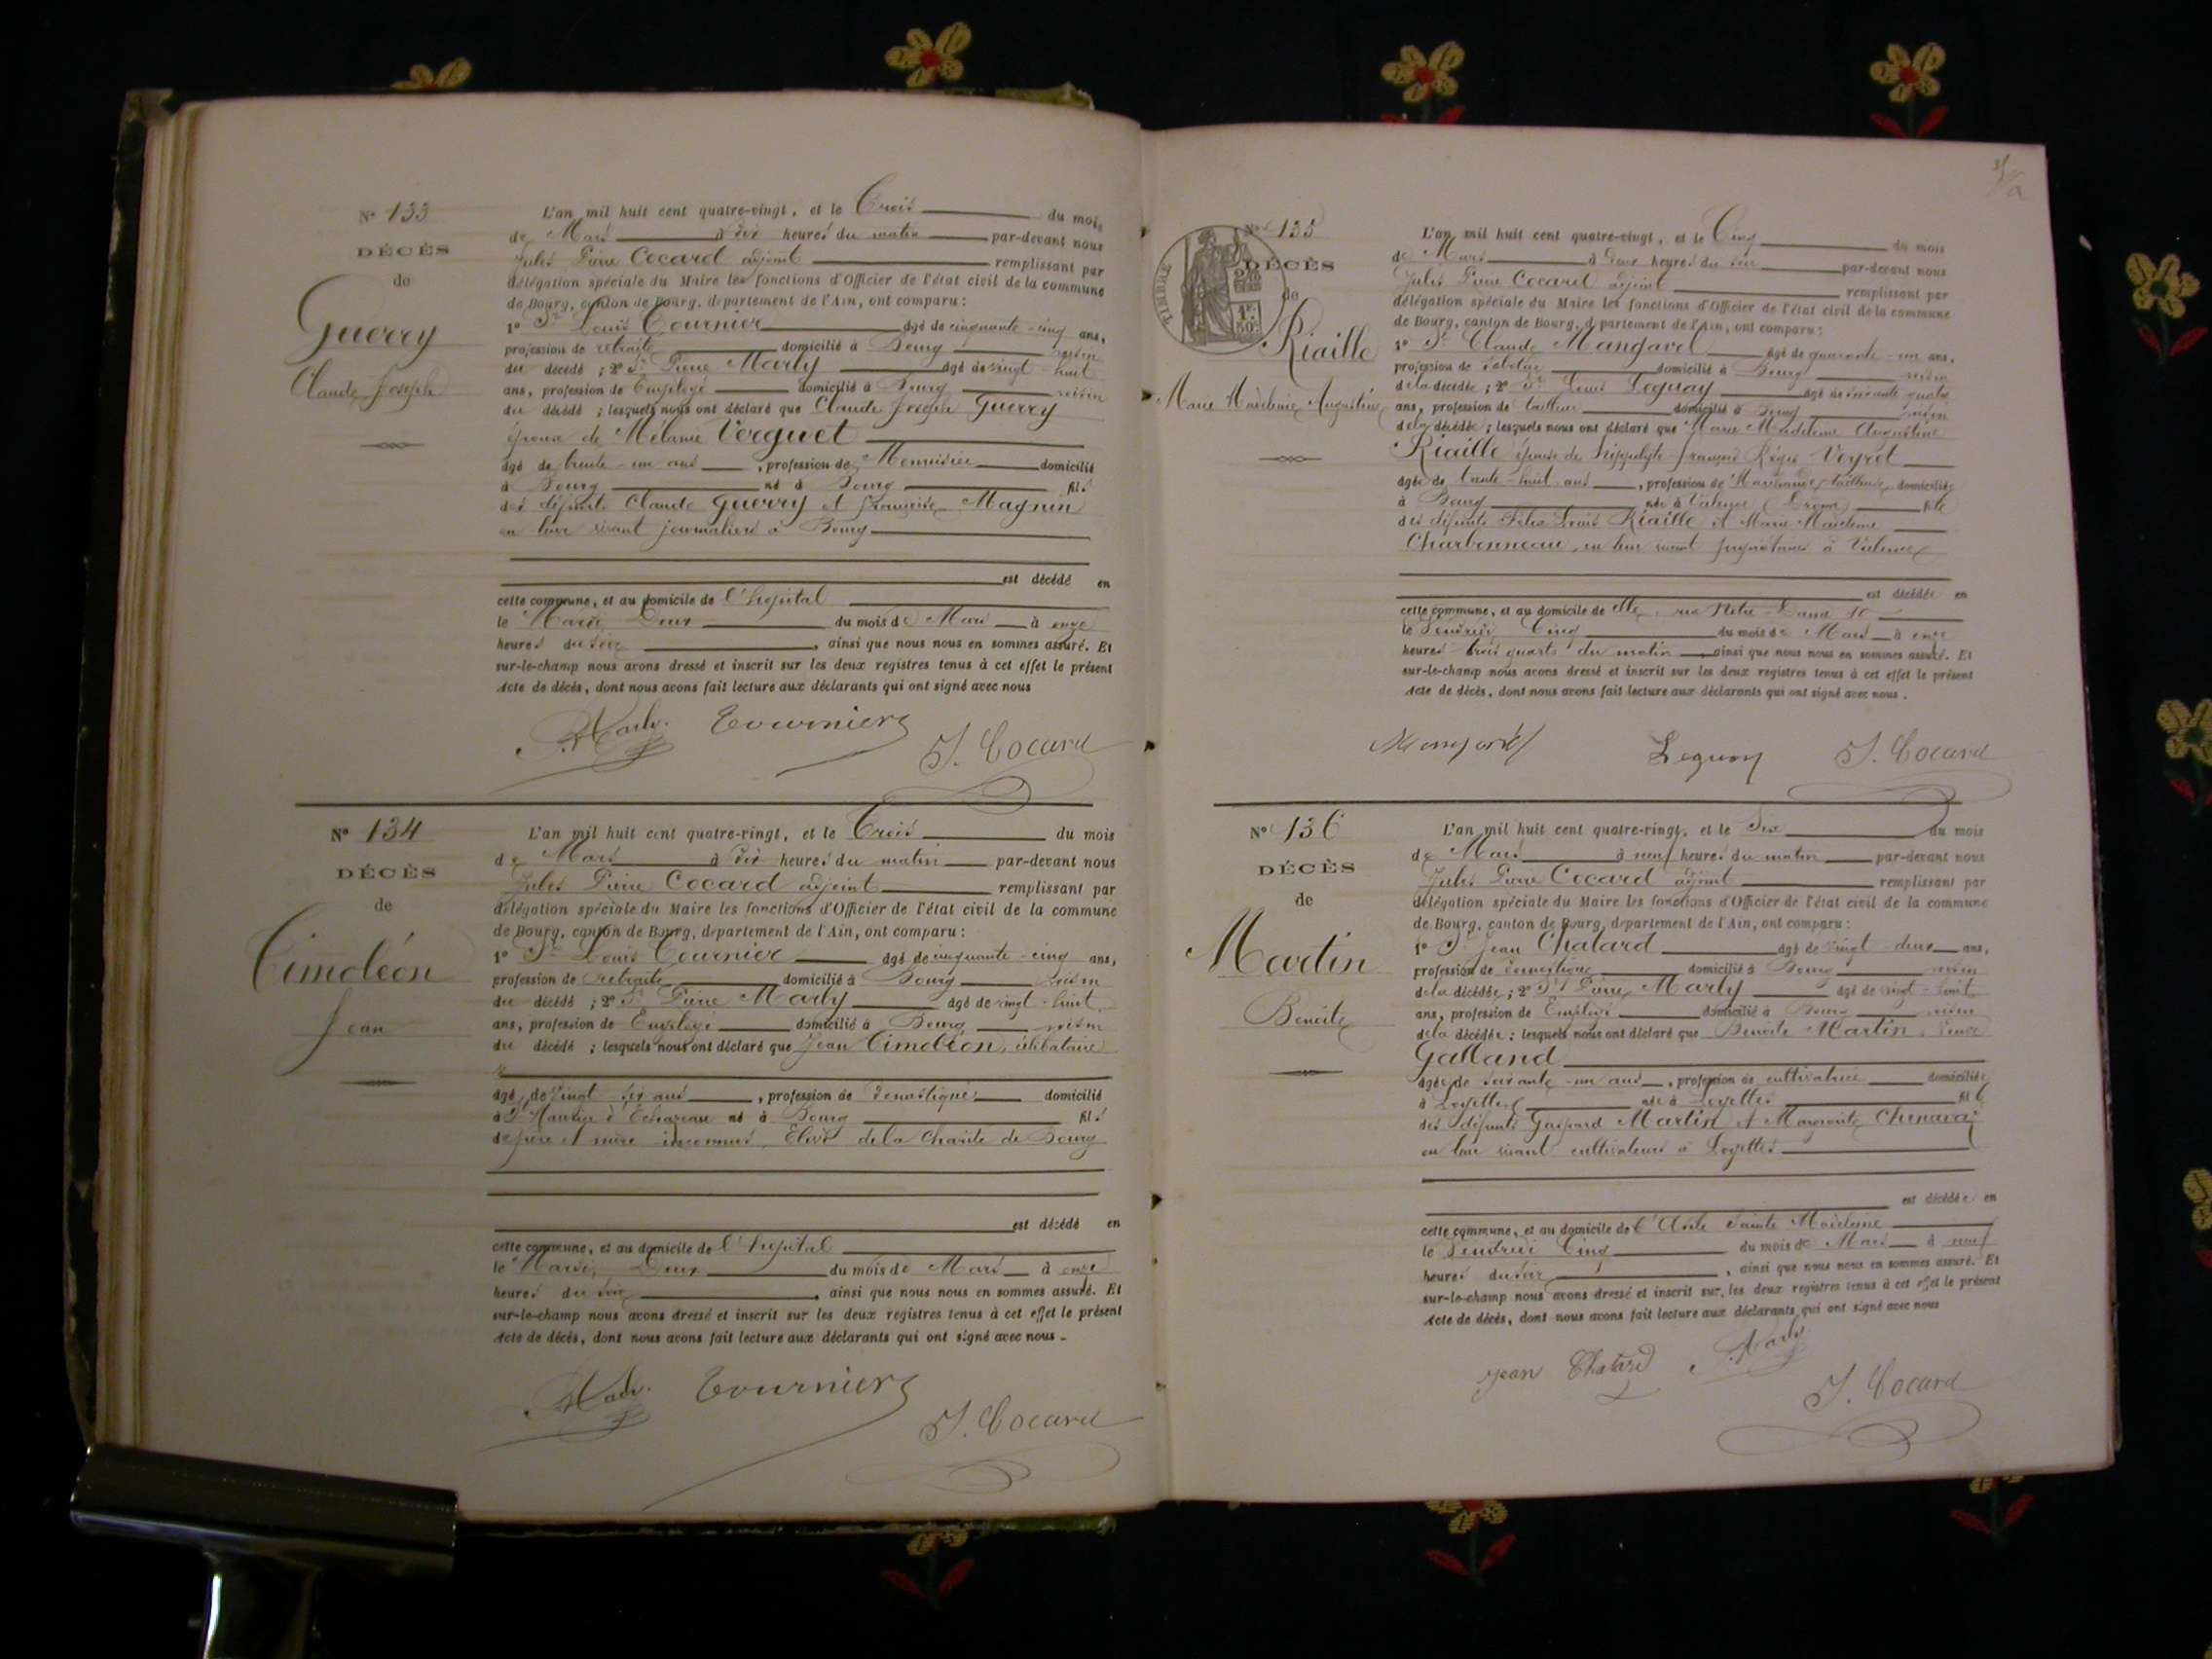 Nº 133
DÉCÈS
de
Guerry
Claude Joseph
L'an mil huit cent quatre-vingt, et le Trois du mois
de Mars à dix heures du matin par-devant nous
Jules Pierre Cocard adjoint remplissant par
délégation spéciale du Maire les fonctions d'Officier de l'état civil de la commune
de Bourg, canton de Bourg, département de l'Ain, ont comparu :
1º Sr Louis Tournier âgé de cinquante-cinq ans,
profession de retraité domicilié à Bourg voisin
du décédé ; 2º Sr Pierre Marly âgé de vingt-huit
ans, profession de Employé domicilié à Bourg voisin
du décédé ; lesquels nous ont déclaré que Claude Joseph Guerry
époux de Mélanie Verguet
âgé de trente-un ans, profession de Menuisier domicilié
à Bourg né à Bourg fils
des défunts Claude Guerry et Françoise Magnin
en leur vivant journaliers à Bourg
est décédé en
cette commune, et au domicile de l'hôpital
le Mardi Deux du mois de Mars à onze
heures du soir, ainsi que nous nous en sommes assuré. Et
sur-le-champ nous avons dressé et inscrit sur les deux registres tenus à cet effet le présent
Acte de décès, dont nous avons fait lecture aux déclarants qui ont signé avec nous
Marly Tournier J. Cocard
Nº 134
DÉCÈS
de
Timoléon
Jean
L'an mil huit cent quatre-vingt, et le Trois du mois
de Mars à dix heures du matin par-devant nous
Jules Pierre Cocard adjoint remplissant par
délégation spéciale du Maire les fonctions d'Officier de l'état civil de la commune
de Bourg, canton de Bourg, département de l'Ain, ont comparu :
1º Sr Louis Tournier âgé de cinquante-cinq ans,
profession de retraité domicilié à Bourg voisin
du décédé ; 2º Sr Pierre Marly âgé de vingt-huit
ans, profession de Employé domicilié à Bourg voisin
du décédé ; lesquels nous ont déclaré que Jean Timoléon, célibataire
âgé de vingt six ans, profession de domestique domicilié
à St Maurice d'Echazeau né à Bourg fils
de père et mère inconnus, Elève de la Charité de Bourg
est décédé en
cette commune, et au domicile de l'hôpital
le Mardi Deux du mois de Mars à onze
heures du soir, ainsi que nous nous en sommes assuré. Et
sur-le-champ nous avons dressé et inscrit sur les deux registres tenus à cet effet le présent
Acte de décès, dont nous avons fait lecture aux déclarants qui ont signé avec nous
Marly Tournier J. Cocard
Nº 135
TIMBRE
1F.
50c
DÉCÈS
de
Riaille
Marie Madeleine Augustine
L'an mil huit cent quatre-vingt, et le Cinq du mois
de Mars à deux heures du soir par-devant nous
Jules Pierre Cocard adjoint remplissant par
délégation spéciale du Maire les fonctions d'Officier de l'état civil de la commune
de Bourg, canton de Bourg, département de l'Ain, ont comparu :
1º Sr Claude Mangavel âgé de quarante-un ans,
profession de domicilié à Bourg voisin
de la décédée ; 2º Sr Louis Leguay âgé de soixante quatre
ans, profession de tailleur domicilié à Bourg voisin
de la décédée ; lesquels nous ont déclaré que Marie Madeleine Augustine
Riaille épouse de Hippolyte François Régis Veyret
âgée de trente-huit ans, profession de Marchande tailleuse domiciliée
à Bourg née à Valence (Drôme) fille
des défunts Félix Louis Riaille et Marie Madeleine
Charbonneau, en leur vivant propriétaires à Valence
est décédée en
cette commune, et au domicile de elle, rue Notre-Dame 10
le Vendredi Cinq du mois de Mars à onze
heures trois quarts du matin, ainsi que nous nous en sommes assuré. Et
sur-le-champ nous avons dressé et inscrit sur les deux registres tenus à cet effet le présent
Acte de décès, dont nous avons fait lecture aux déclarants qui ont signé avec nous.
Leguay J. Cocard
Nº 136
DÉCÈS
de
Martin
Benoite
L'an mil huit cent quatre-vingt, et le Six du mois
de Mars à neuf heures du matin par-devant nous
Jules Pierre Cocard adjoint remplissant par
délégation spéciale du Maire les fonctions d'Officier de l'état civil de la commune
de Bourg, canton de Bourg, département de l'Ain, ont comparu :
1º Sr Jean Chatard âgé de vingt-deux ans,
profession de domestique domicilié à Bourg voisin
de la décédée ; 2º Sr Pierre Marly âgé de vingt-huit
ans, profession de Employé domicilié à Bourg voisin
de la décédée ; lesquels nous ont déclaré que Benoite Martin, veuve
Galland
âgée de soixante-un ans, profession de cultivatrice domiciliée
à Loyettes née à Loyettes fille
des défunts Gaspard Martin et Marguerite Chenavaj
en leur vivant cultivateurs à Loyettes
est décédée en
cette commune, et au domicile de l'Asile Sainte Madeleine
le Vendredi Cinq du mois de Mars à neuf
heures du soir, ainsi que nous nous en sommes assuré. Et
sur-le-champ nous avons dressé et inscrit sur les deux registres tenus à cet effet le présent
Acte de décès, dont nous avons fait lecture aux déclarants qui ont signé avec nous
Jean Chatard Marly J. Cocard